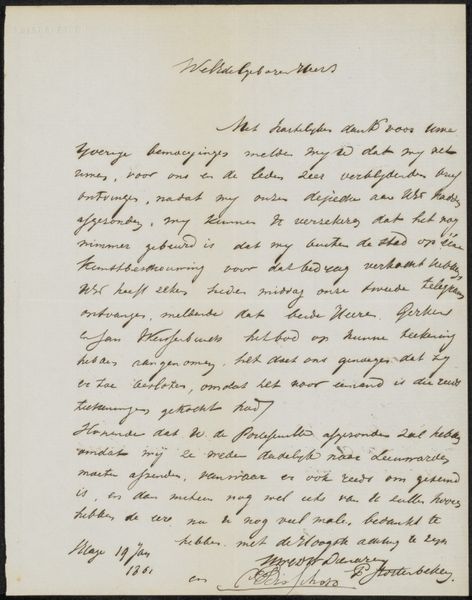 WelEdelgeboren Heer
Met hartelijken dank voor Uwe
Yverige bemoeyinges melden myU dat my
Uwes, voor ons en de leden zeer verblydenden brief
ontvinges, nadat my onzes depeche aan UEd hadden
afgezonden, my kunnen U verzekeren dat het nog
nimmer gebeurd is dat my buiten de stad op ééne
Kunstbeschouwing voor dat bedrag verkocht hebben
UEd heeft zeker heden middag onze tweede telegram
ontvanges, meldende dat beide Heeren Gerkens
en Jan het bod op hunne teekening
hebben aangenomen. het doet ons genoeges dat zy
er toe beslotes, omdat het voor iemand is die reeds
teekeninges gekocht had
Hopende dat U de Portefeuille afgezonden zal hebben
omdat my ze weder dadelyk naar Leeuwarden
moeten afzenden, vanwaar er ook reeds om geseind
is, en dan nog wel iets van te zullen hooren
hebben de eer, na U nog veel males bedankt te
hebben met de Hoogste achting te zyn
Hage 19 Jan
1861
UWEDDw Dienaren
en P. Stortenbeker